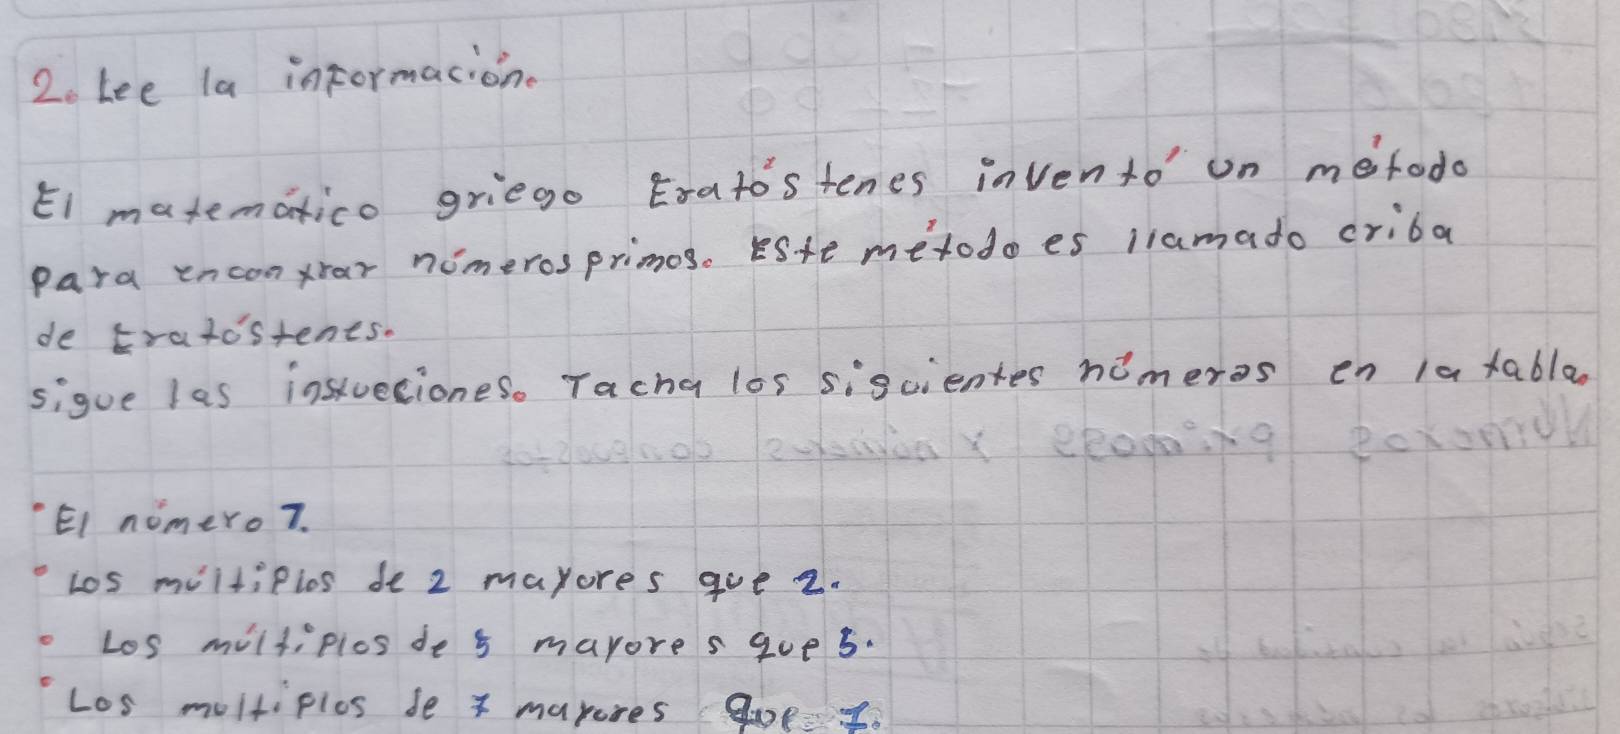 2. Lee la información.
El matemático griego Eratóstenes inventó un método
para encontrar números primos. Este método es llamado criba
de Eratóstenes.
sigue las instrucciones. Tacha los siguientes números en la tabla.
• El número 7.
• Los múltiplos de 2 mayores que 2.
• Los múltiplos de 5 mayores que 5.
• Los multiplos de 7 mayores que 7.